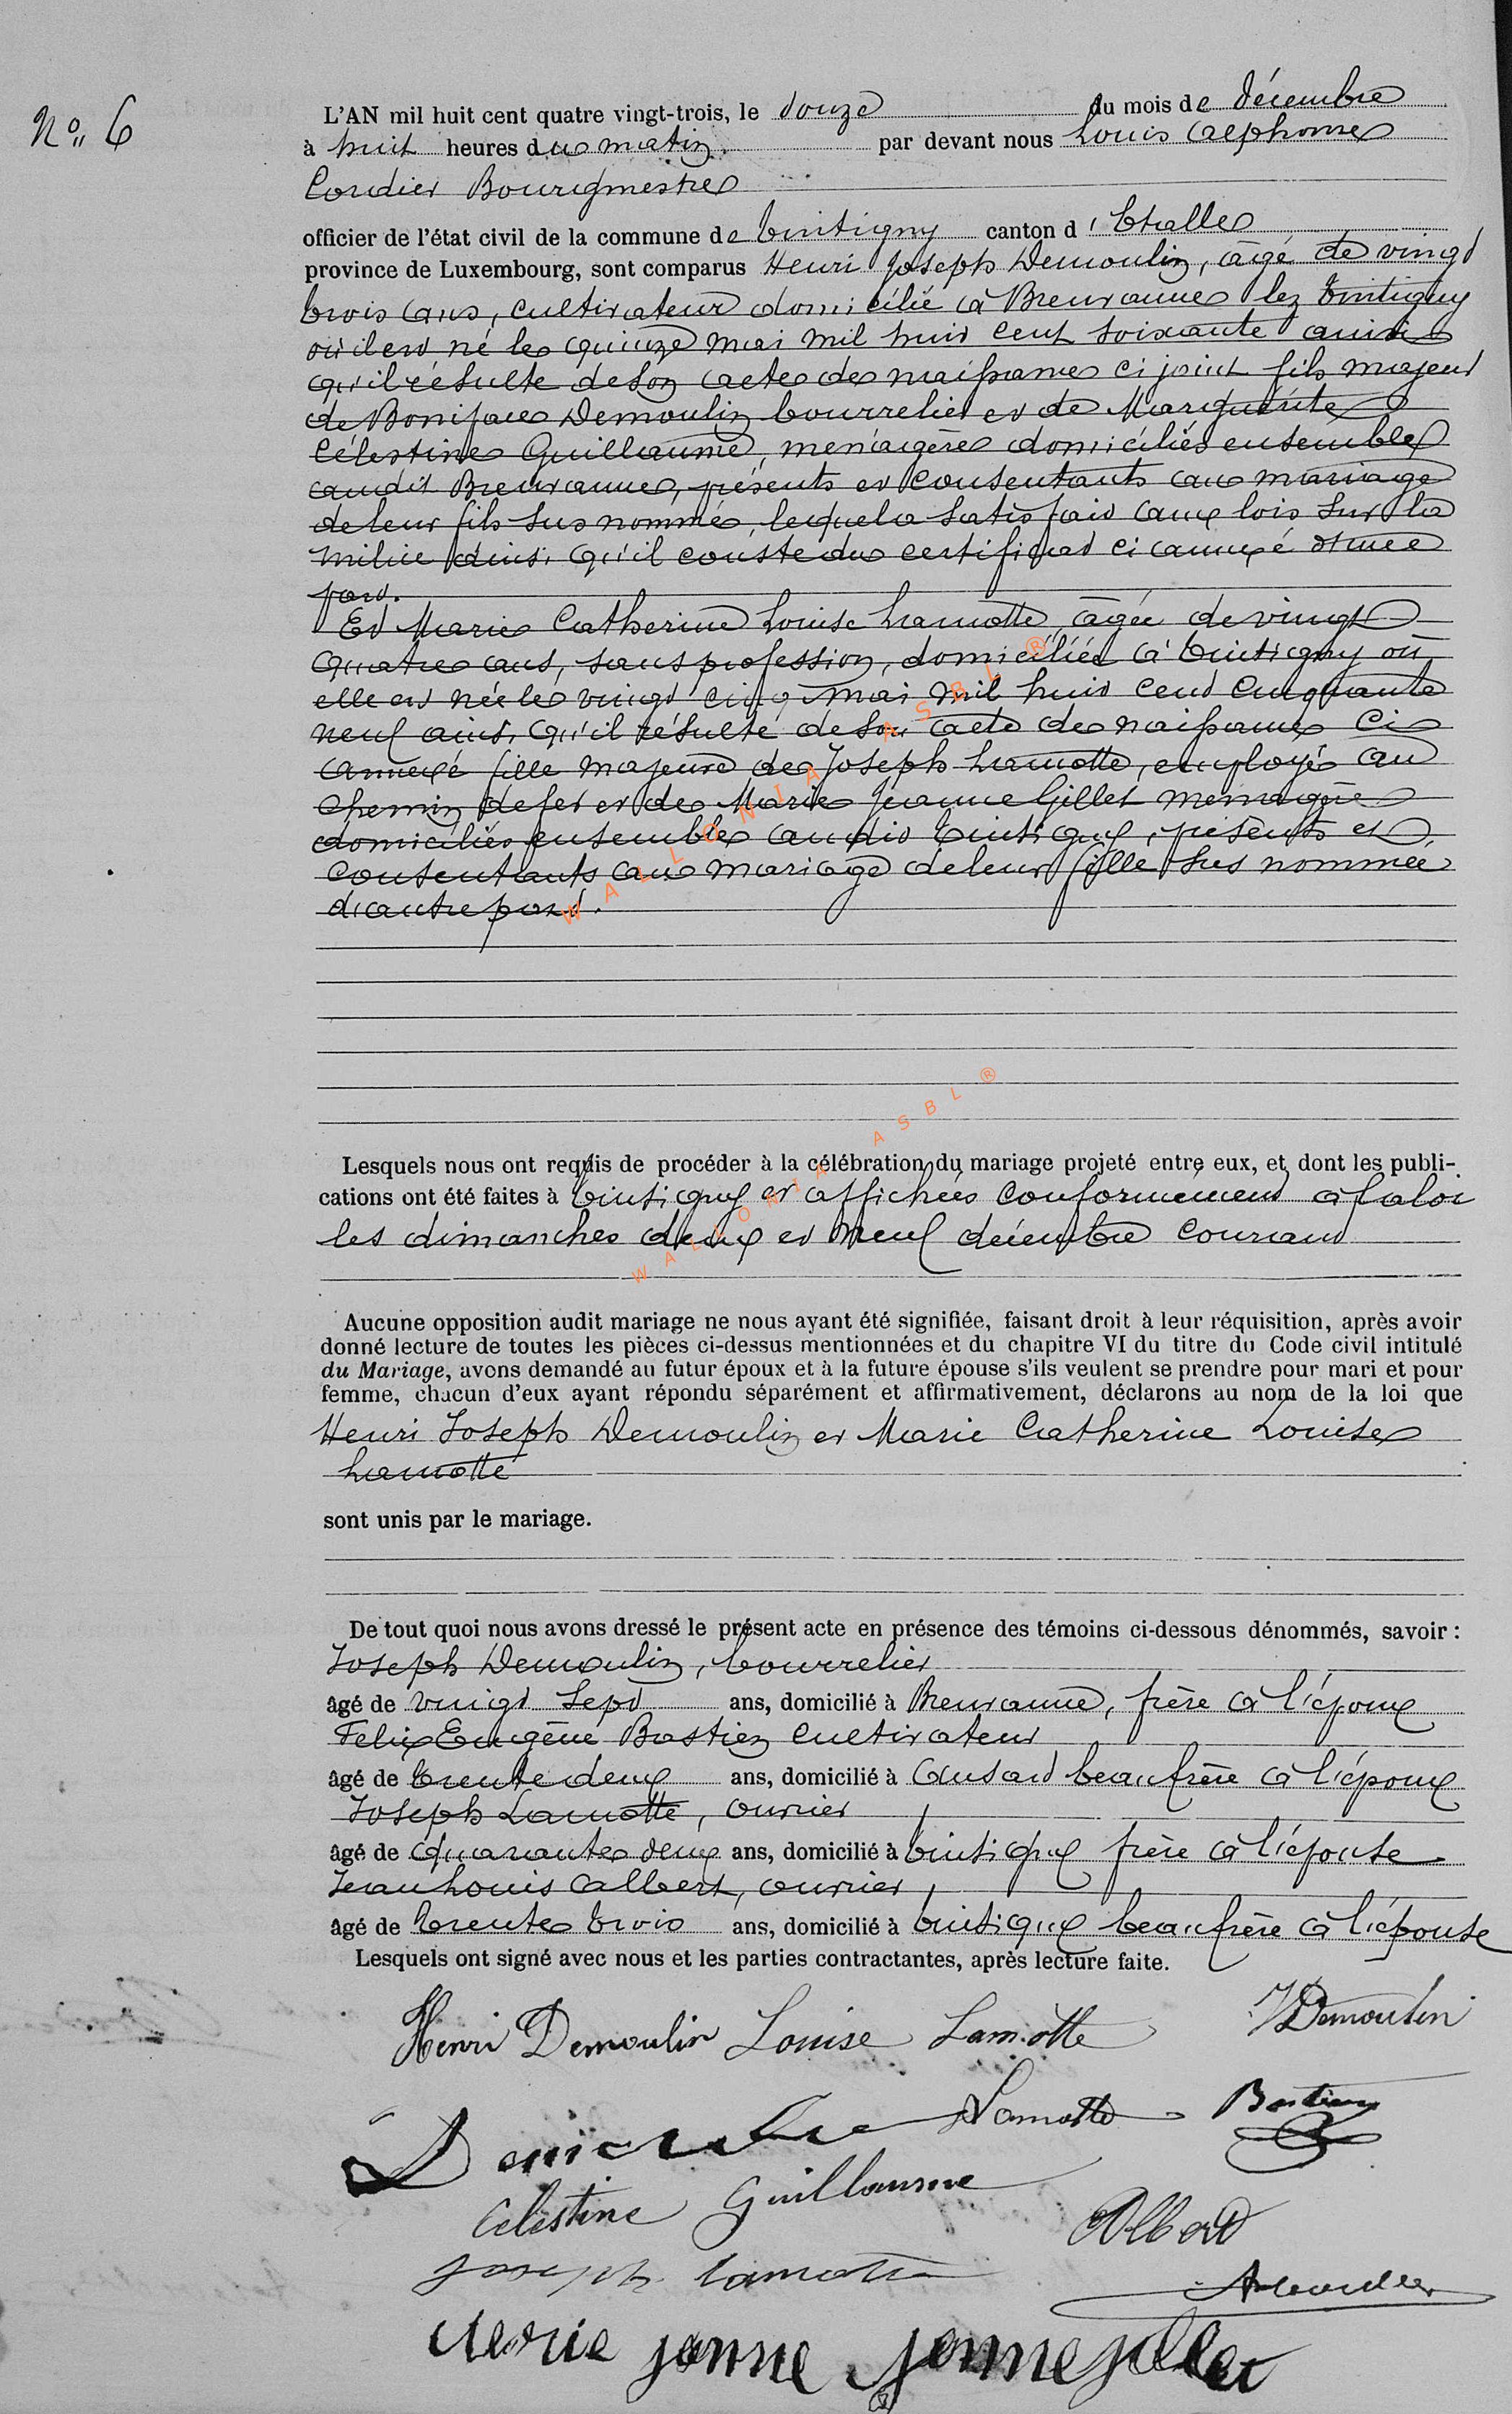 N° 6
L'AN mil huit cent quatre vingt-trois, le douze du mois de décembre
à huit heures du matin par devant nous Louis Alphonse
Cordier Bourgmestre
officier de l'état civil de la commune de Tintigny canton d'Etalle
province de Luxembourg, sont comparus Henri Joseph Demoulin, âgé de vingt
trois ans, cultivateur domicilié à Breuvanne lez Tintigny
où il est né le quinze mai mil huit cent soixante ainsi
qu'il résulte de son acte de naissance ci joint fils majeur
de Boniface Demoulin bourrelier et de Marguerite
Célestine Guillaume, menagère domiciliés ensemble
audit Breuvanne, présents et consentants au mariage
de leur fils sus nommé, lequel a satisfait aux lois sur la
milice ainsi qu'il conste du certificat ci annexé d'une
part.
Et Marie Catherine Louise Lamotte, âgée de vingt
quatre ans, sans profession, domiciliée à Tintigny où
elle est née le vingt cinq mai mil huit cent cinquante
neuf ainsi qu'il résulte de son acte de naissance ci
annexé fille majeure de Joseph Lamotte, employé au
chemin de fer et de Marie Jeanne Gillet menagère
domiciliés ensemble audit Tintigny, présents et
consentants au mariage de leur fille sus nommée
d'autre part.
WALLONIA ASBL ®
Lesquels nous ont requis de procéder à la célébration du mariage projeté entre eux, et dont les publi-
cations ont été faites à Tintigny et affichées conformément à la loi
les dimanches deux et neuf décembre courant
WALLONIA ASBL ®
Aucune opposition audit mariage ne nous ayant été signifiée, faisant droit à leur réquisition, après avoir
donné lecture de toutes les pièces ci-dessus mentionnées et du chapitre VI du titre du Code civil intitulé
du Mariage, avons demandé au futur époux et à la future épouse s'ils veulent se prendre pour mari et pour
femme, chacun d'eux ayant répondu séparément et affirmativement, déclarons au nom de la loi que
Henri Joseph Demoulin et Marie Catherine Louise
Lamotte
sont unis par le mariage.
De tout quoi nous avons dressé le présent acte en présence des témoins ci-dessous dénommés, savoir :
Joseph Demoulin, bourrelier
âgé de vingt sept ans, domicilié à Breuvanne, frère à l'époux
Felix Eugène Bastien cultivateur
âgé de trente deux ans, domicilié à Ansart beau frère à l'époux
Joseph Lamotte, ouvrier
âgé de quarante deux ans, domicilié à Tintigny frère à l'épouse
Jean Louis Albert, ouvrier
âgé de trente trois ans, domicilié à Tintigny beau frère à l'épouse
Lesquels ont signé avec nous et les parties contractantes, après lecture faite.
Henri Demoulin Louise Lamotte J Demoulin
Lamotte Bastien
Celestine Guillaume
Albert
joseph lamotte
A Cordier
Marie janne jenne jillet